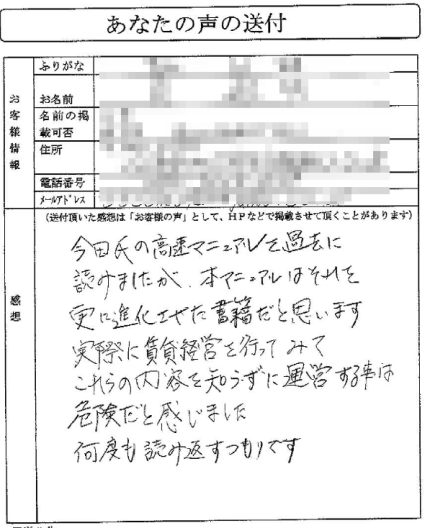 あなたの声の送付
お客様情報
ふりがな
お名前
名前の掲載可否
住所
電話番号
メールアドレス
(送付頂いた感想は「お客様の声」として、HPなどで掲載させて頂くことがあります)
感想
今田氏の高速マニュアルを過去に
読みましたが、本マニュアルはそれを
更に進化させた書籍だと思います
実際に賃貸経営を行ってみて
これらの内容を知らずに運営する事は
危険だと感じました
何度も読み返すつもりです